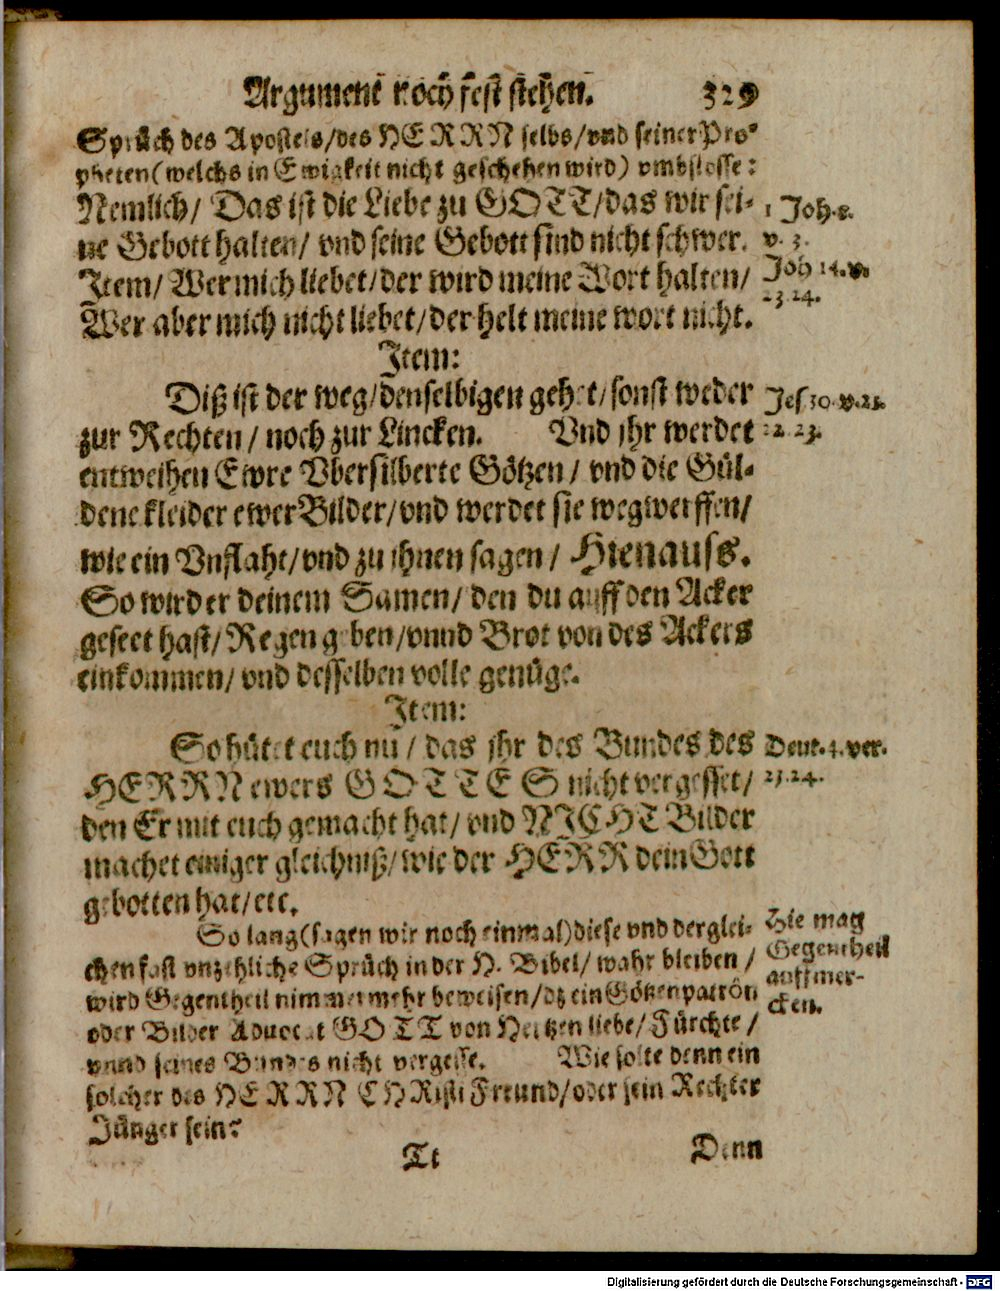 Argument noch fest stehen. 329
Sprüch des Apostels/des HERRN selbs/vnd seiner Pro-
pheten (welchs in Ewigkeit nicht geschehen wird) vmbstosse:
Nemlich/ Das ist die Liebe zu GOTT/das wir sei-
ne Gebott halten/ vnd seine Gebott sind nicht schwer.
1 Joh. 5.
v. 3.
Item/ Wer mich liebet/der wird meine Wort halten/
Wer aber mich nicht liebet/der helt meine wort nicht.
Joh 14. v.
23 24.
Item:
Diß ist der weg/denselbigen gehet/sonst weder
zur Rechten/ noch zur Lincken. Vnd ihr werdet
entweihen Ewre Vbersilberte Götzen/ vnd die Gül-
dene kleider ewer Bilder/vnd werdet sie wegwerffen/
wie ein Vnflaht/vnd zu ihnen sagen/ Hienauss.
So wird er deinem Samen/ den du auff den Acker
geseet hast/ Regen geben/vnnd Brot von des Ackers
einkommen/ vnd desselben volle genüge.
Jes 30 v. 21.
22 23.
Item:
So hütet euch nu/ das ihr des Bundes des
HERRN ewers GOTTES nicht vergesset/
den Er mit euch gemacht hat/ vnd NICHT Bilder
machet einiger gleichniß/ wie der HERR dein Gott
gebotten hat/etc.
Deut. 4. ver.
23.24.
So lang (sagen wir noch einmal) diese vnd derglei-
chen fast vnzehliche Sprüch in der H. Bibel/ wahr bleiben/
wird Gegentheil nimmermehr beweisen/dz ein Götzenpatrön
oder Bilder Aduocat GOTT von Hertzen liebe/ Fürchte/
vnnd seines Bundes nicht vergesse. Wie solte denn ein
solcher des HERRN CHRisti Freund/oder sein Rechter
Jünger sein?
Hie mag
Gegentheil
auffmer-
cken.
Tt Denn
Digitalisierung gefördert durch die Deutsche Forschungsgemeinschaft - DFG